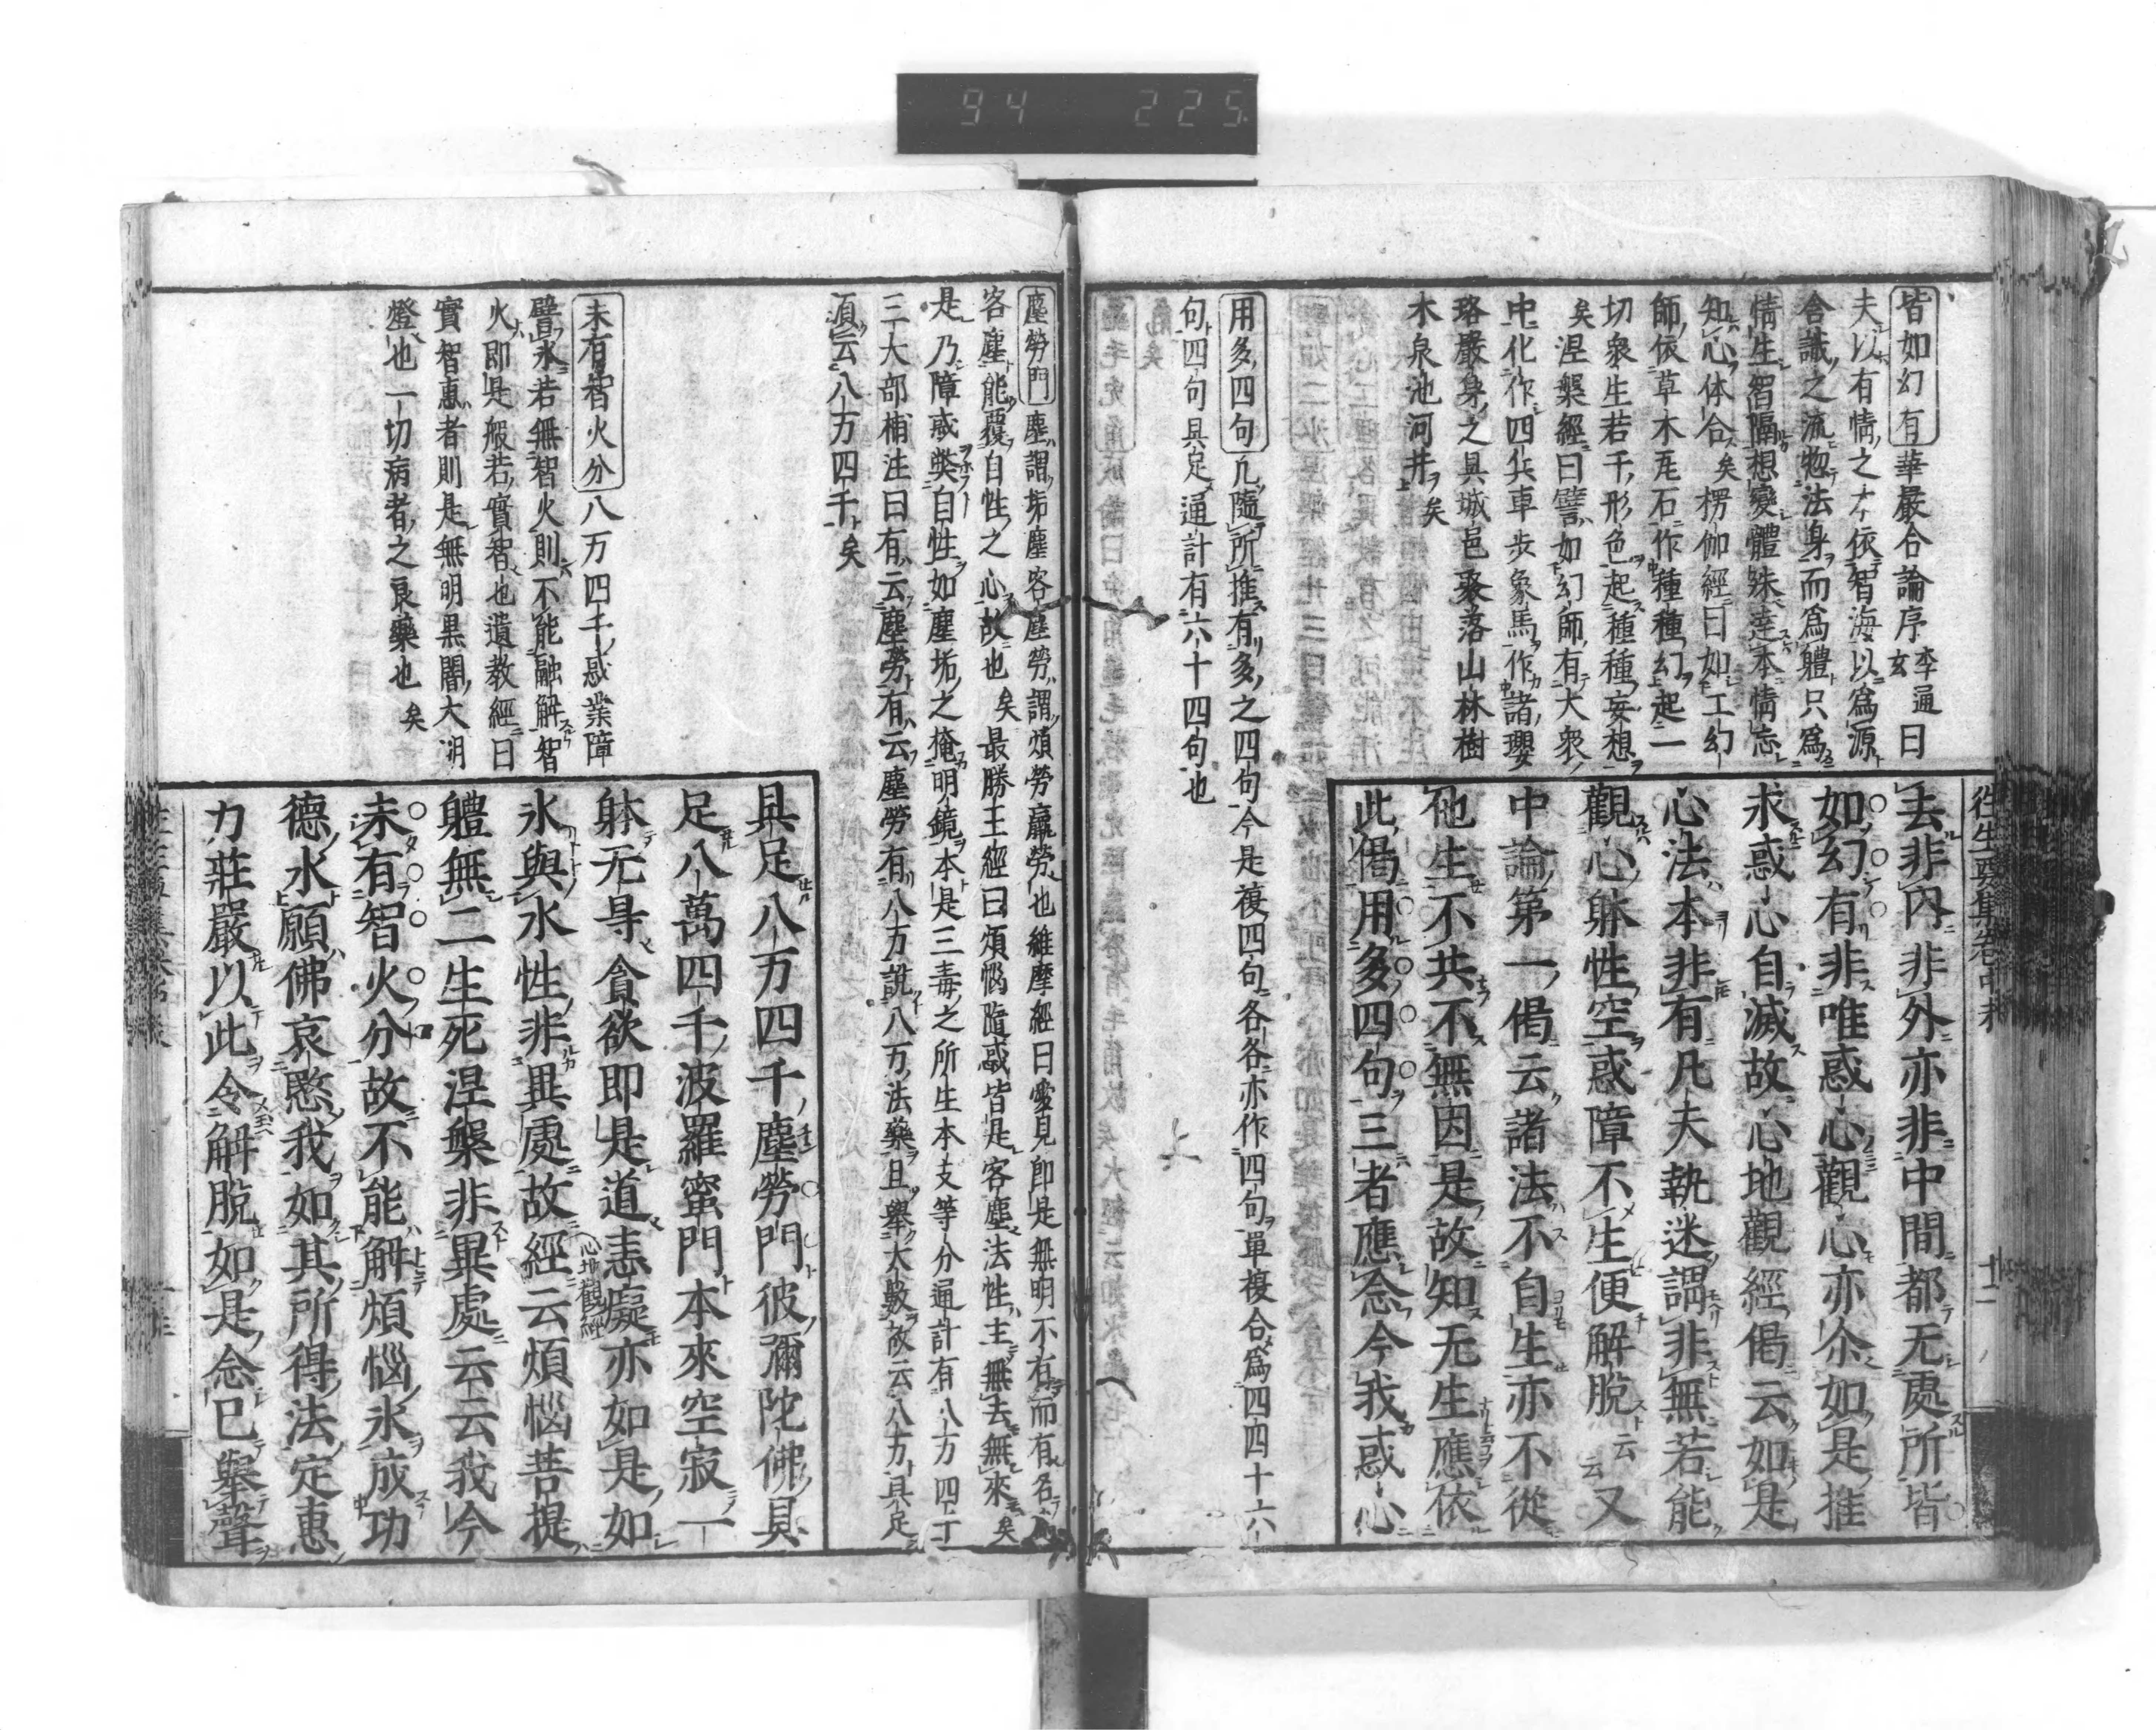 94 225
往生要集卷中末
十二
皆如幻有 華嚴合論序 李通玄 曰
夫以有情之本依智海以爲源
含識之流惣法身而爲體只爲
情生智隔想變體殊達本情忘
知心体合矣 楞伽經曰如工幻
師依草木瓦石作種種幻起一
切衆生若干形色起種種妄想
矣 涅槃經曰譬如幻師有大衆
中化作四兵車步象馬作諸瓔
珞嚴身之具城邑聚落山林樹
木泉池河井矣
用多四句 凢隨所推有多之四句今是複四句各各亦作四句單複合爲四四十六
句四句具足通計有六十四句也
去非內非外亦非中間都无處所皆
如幻有非唯惑心觀心亦尒如是推
求惑心自滅故心地觀經偈云如是
心法本非有凡夫執迷謂非無若能
觀心躰性空惑障不生便解脫云云又
中論第一偈云諸法不自生亦不從
他生不共不無因是故知无生應依
此偈用多四句三者應念今我惑心
塵勞門 塵謂垢塵客塵勞謂煩勞麤勞也維摩經曰愛見即是無明不有而有名
客塵能覆自性之心故也矣 最勝王經曰煩惱隨惑皆是客塵法性主無去無來矣
是乃障惑弊自性如塵垢之掩明鏡本是三毒之所生本支等分通計有八万四千
三大部補注曰有云塵勞有云塵勞有八万說八万法藥且舉大數故云八万具足
須云八万四千矣
未有智火分 八万四千惑業障
譬氷若無智火則不能融解智
火即是般若實智也遺教經曰
實智惠者則是無明黒闇大明
燈也一切病者之良藥也矣
具足八万四千塵勞門彼彌陀佛具
足八萬四千波羅蜜門本來空寂一
躰无㝵貪欲即是道恚癡亦如是如
氷與水性非異處故經 心地觀經 云煩惱菩提
軆無二生死涅槃非異處云云我今
未有智火分故不能解煩惱氷成功
德水願佛哀愍我如其所得法定惠
力莊嚴以此令解脫如是念已舉聲